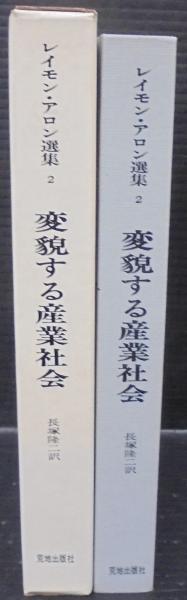 レイモン・アロン選集
2
変貌する産業社会
長塚隆二訳
荒地出版社
レイモン・アロン選集
2
変貌する産業社会
長塚隆二訳
荒地出版社